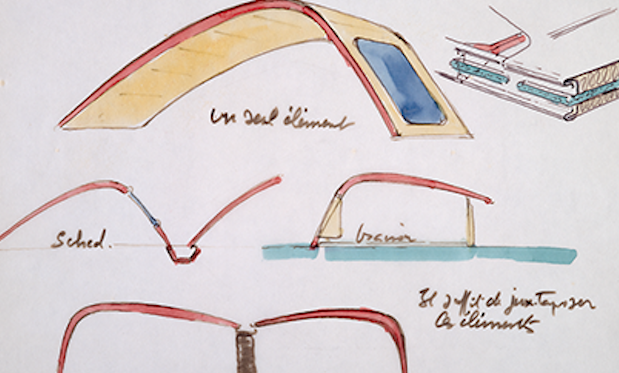 un seul élément
Sched.
Il suffit de juxtaposer
les éléments